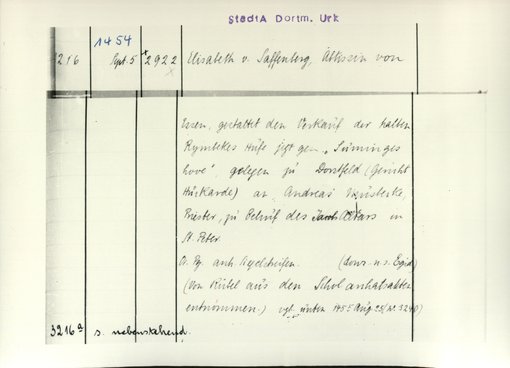 StadtA Dortm. Urk
1454
3216 Spt. 5 + 2922 Elisabeth v. Saffenberg, Äbtissin von
x
Essen, gestattet den Verkauf der halben
Rymbekes Hufe jetzt gen. „Sünninges
hove", gelegen zu Dorstfeld (Gericht
Huckarde) an Andreas
Priester, zu Behuf des Altars in
St. Peter.
O. Pg. anh. Siegelstreifen. (dors. n. s. Egid)
(von Rübel aus den Scholanhalsakten
entnommen.) vgl. unten 1455 Aug 25/Nr. 3240)
3216a s. nebenstehend.